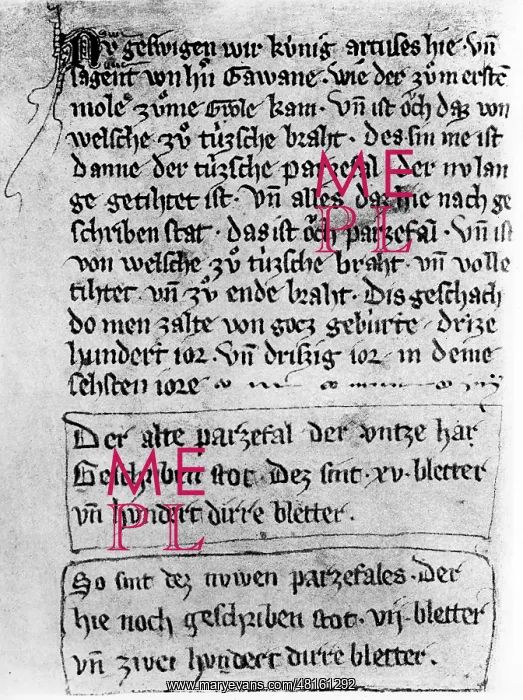 Nv geswigen wir kúnig artuses hie· vñ
sagent von hñ Gawane· wie der zům ersten
mole zůme Grole kam· Vñ ist öch daz von
welsche zů túzsche braht· des sin me ist
danne der túzsche parzefal Der nv lan
ge getihtet ist· Vñ alles daz hie nach ge
schriben stat· das ist öch parzefal· Vñ ist
von welsche zů túzsche braht· vñ volle
tihtet· vñ zů ende braht· Dis geschach
do men zalte von gocz gebúrte· drize
hundert ior· Vñ drißig ior· in deme
sehsten iore
Der alte parzefal der vntze har
Geschriben stot· Dez sint·xv·bletter
vñ hundert dirre bletter.
So sint dez nuwen parzefales·Der
hie noch geschriben stot· vij·bletter
vñ zwei hundert dirre bletter.
ME
PL
ME
PL
www.maryevans.com/48161292